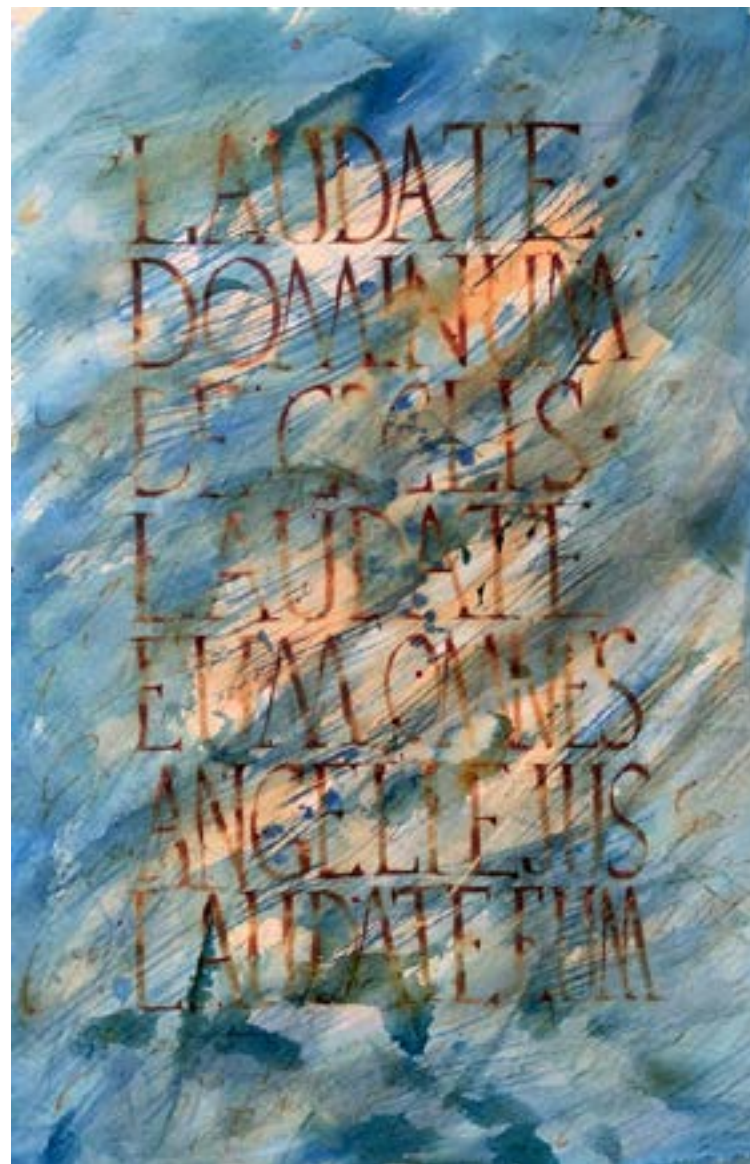 LAUDATE:
DOMINUM
DE COELIS.
LAUDATE
EUM OMNES
ANGELI EJUS
LAUDATE EUM